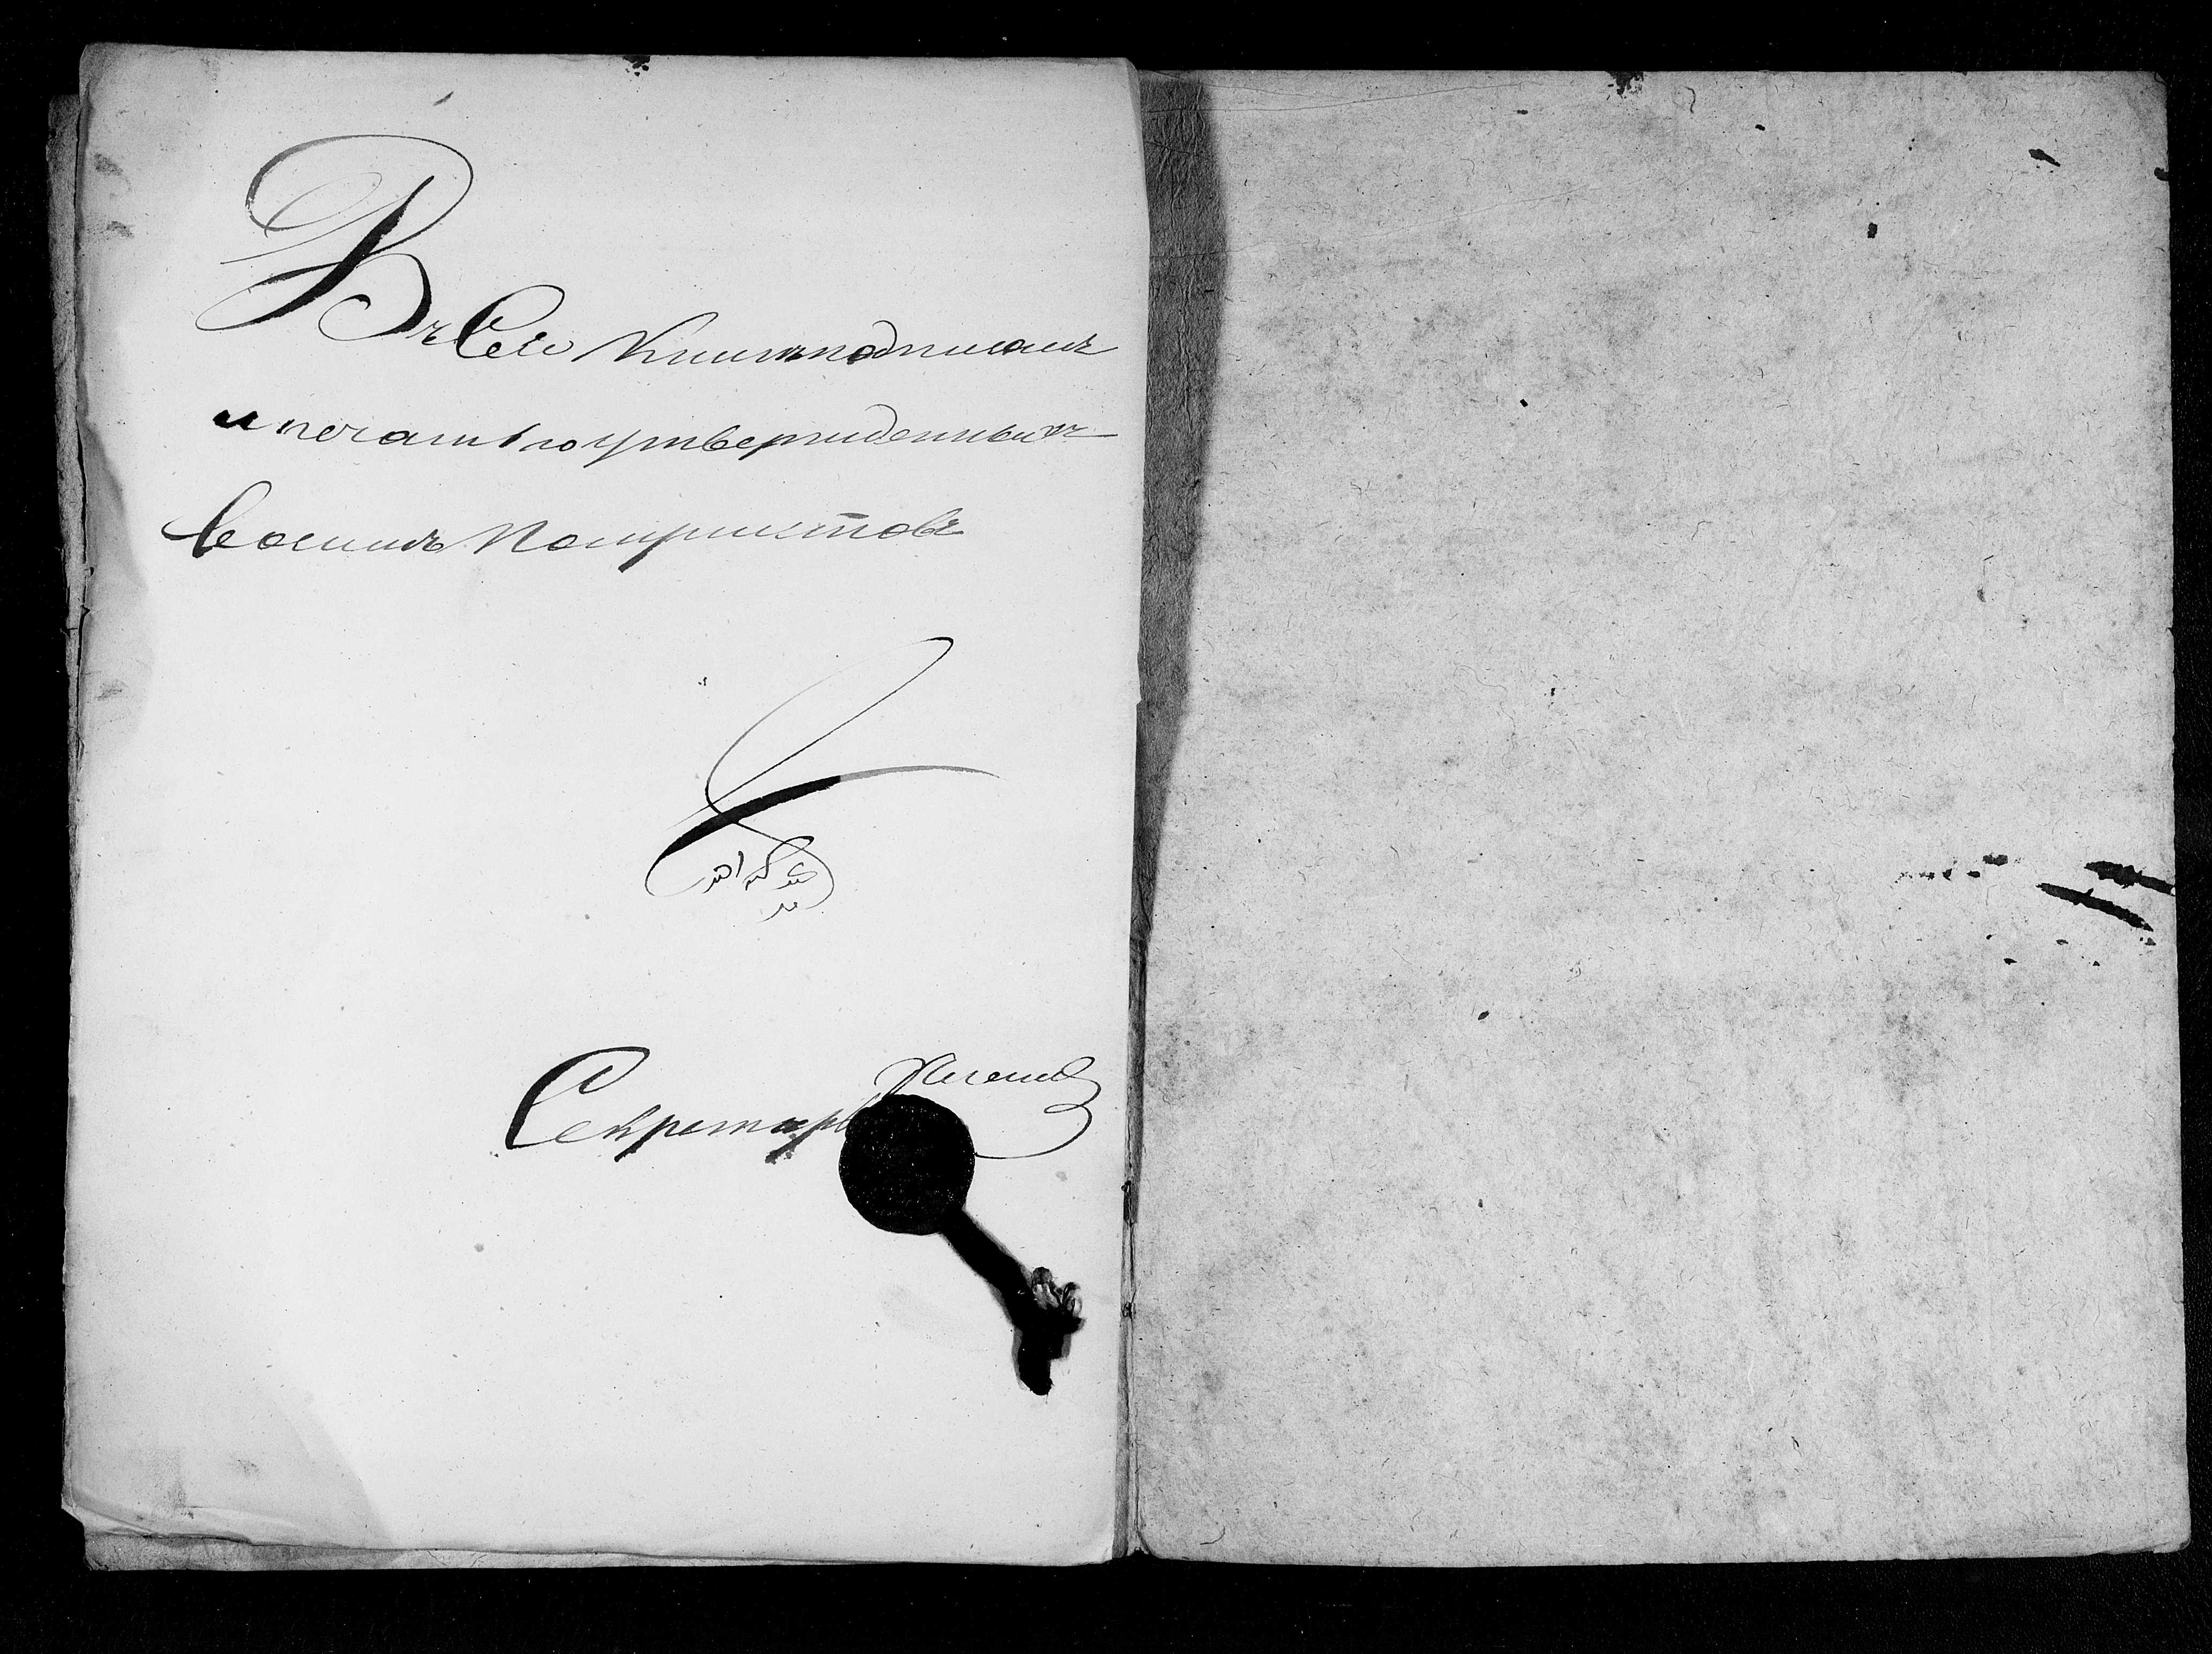 Въ Сей Книги подписанъ
и печатью утвержденныхъ
восимъ полулистовъ
Секретарь